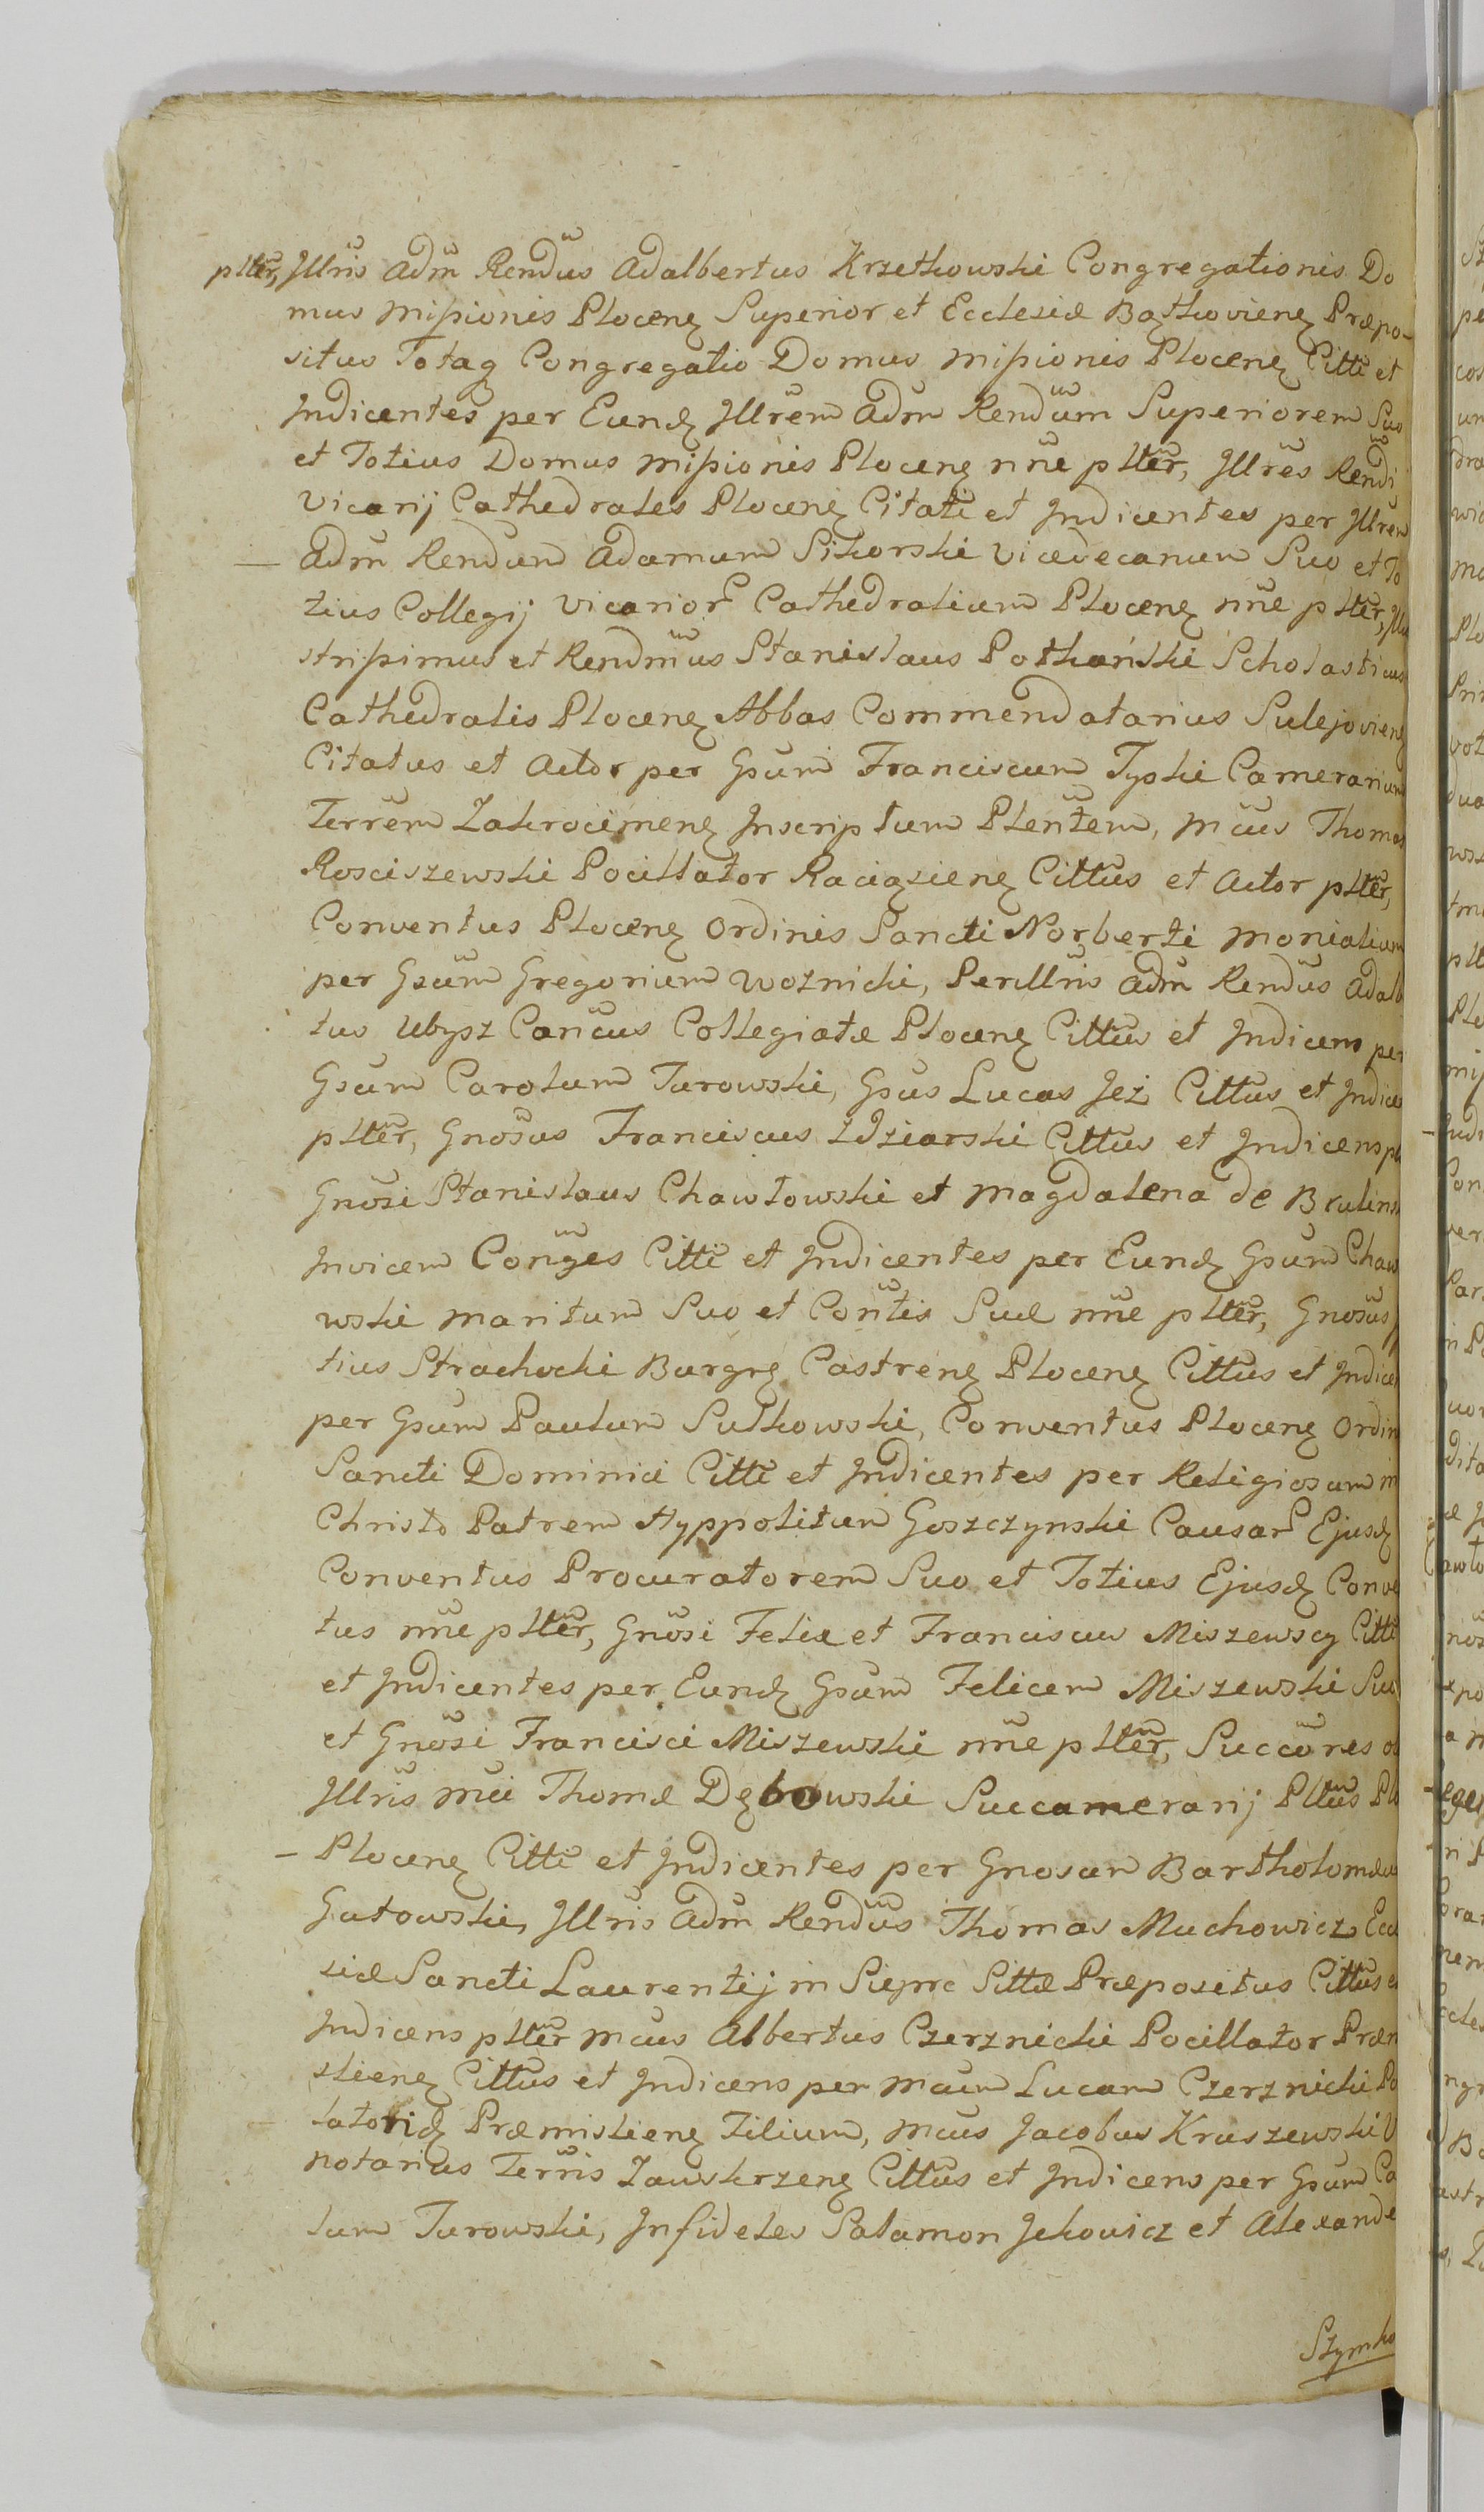 plter, Jllris adm Rendus adalbertus Krzetkowski Congregationis Do
mus missionis Plocens Superior et Ecclesiæ Bązkoviens Præpo-
situs Totaq Congregatio Domus missionis Plocens Citti et
Jndicentes per Eund Jllrem adm Rendum Superiorem Suo
et Totius Domus missionis Plocens nne plter, Jllres Rendi
Vicarij Cathedrales Plocens Citati et Jndicentes per Jllrem
adm Rendum adamum Sikorski vicedecanum Suo et To
tius Collegij vicarior Cathedralium Plocens nne plter, Jllu
strissimus et Rendmus Stanislaus Pothański Scholasticus
Cathedralis Plocens Abbas Commendatarius Sulejoviens
Citatus et actor per Gsum Franciscum Tyski Camerarium
Terrem Zakrocimens Jnscriptum Plentem, mcus Thomas
Rosciszewski Pocillator Raciąziens Cittus et actor plter,
Conventus Plocens ordinis Sancti Norberti monialium
per Gsum Gregorium woznicki, Perillris adm Rendus adalb
tus Ubysz Cancus Collegiatæ Plocens Cittus et Jndicens per
Gsum Carolum Turowski, Gsus Lucas Jeż Cittus et Jndicen
plter, Gnosus Franciscus Zdziarski Cittus et Jndicens pl
Gnosi Stanislaus Chawłowski et magdalena de Brulins
Jnvicem Conges Citti et Jndicentes per Eund Gsum Chaw
wski maritum Suo et Contis Suæ nne plter, Gnosus
tius Strachocki Burgrs Castrens Plocens Cittus et Jndicen
per Gsum Paulum Sulkowski, Conventus Plocens ordin
Sancti Dominici Citti et Jndicentes per Religiosum in
Christo Patrem Hyppolitum Goszczynski Causar Ejusd
Conventus Procuratorem Suo et Totius Ejusd Conve
tus nne plter, Gnosi Felix et Franciscus Miszewscy Citti
et Jndicentes per Eund Gsum Felicem Miszewski Suo
et Gnosi Francisci Miszewski nne plter, Succores ol
Jllris mci Thomæ Dębowski Succamerarij Pltus Plo
Plocens Citti et Jndicentes per Gnosum Bartholomæu
Gutowski, Jllris adm Rendus Thomas Muchowicz Eccl
siæ Sancti Laurentij in Sierpc Sittæ Præpositus Cittus et
Jndicens plter mcus Albertus Czerznicki Pocillator Præm
sliens Cittus et Jndicens per mcum Lucam Czerznicki Po
latorid Præmisliens Filium, mcus Jacobus Kruszewski V
notarius Terris Zawskrzens Cittus et Jndicens per Gsum Ca
lum Turowski, Jnfideles Salamon Jckowicz et Alexande
Szymko